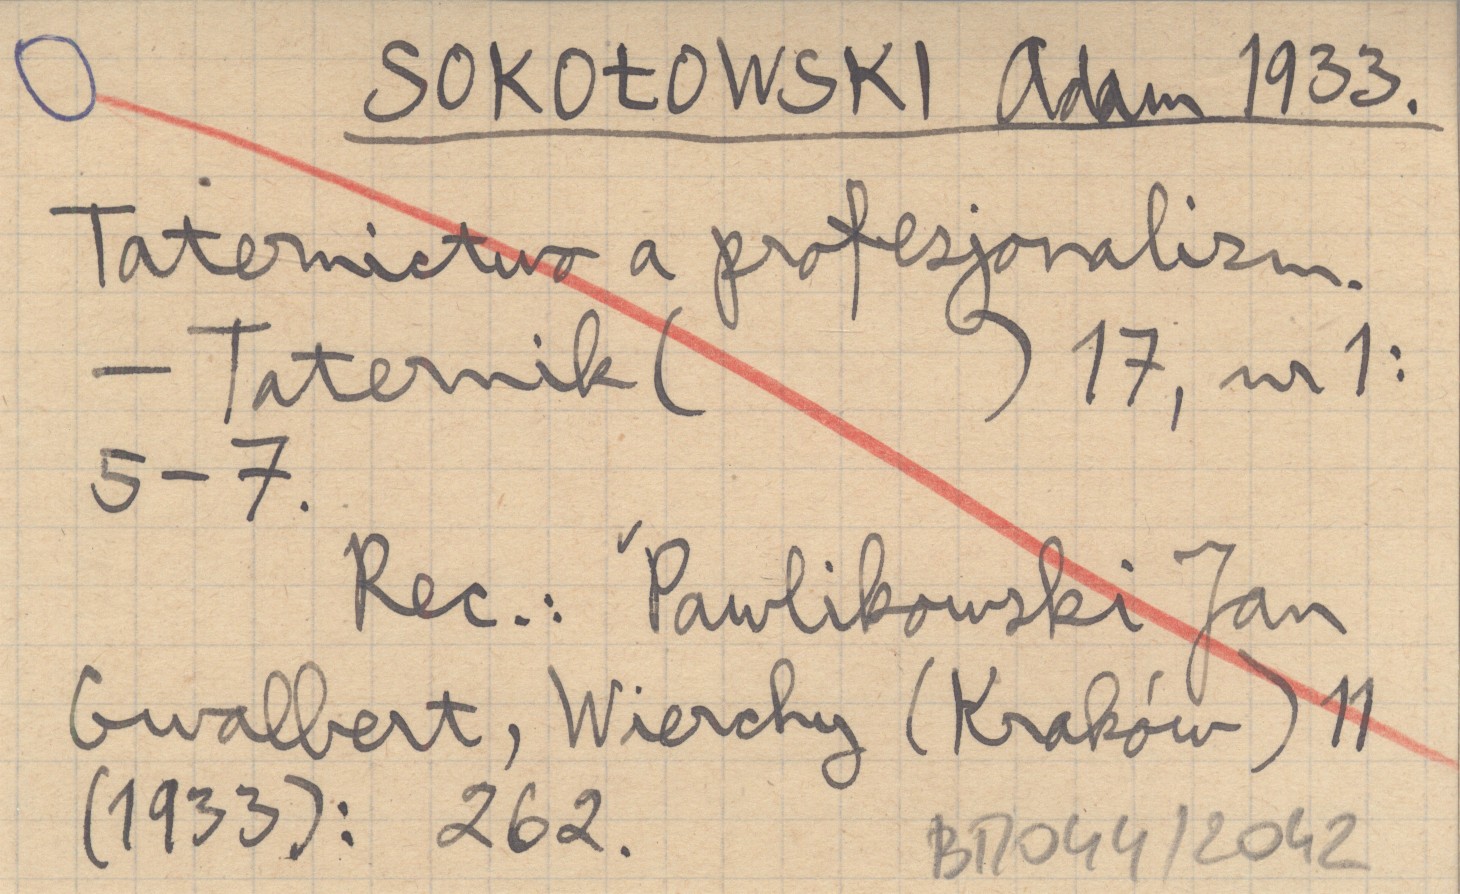 SOKOŁOWSKI Adam 1933.
Taternictwo a profesjonalizm.
— Taternik ( ) 17, nr 1:
5-7.
Rec.: Pawlikowski Jan
Gwalbert, Wierchy (Kraków) 11
(1933): 262.